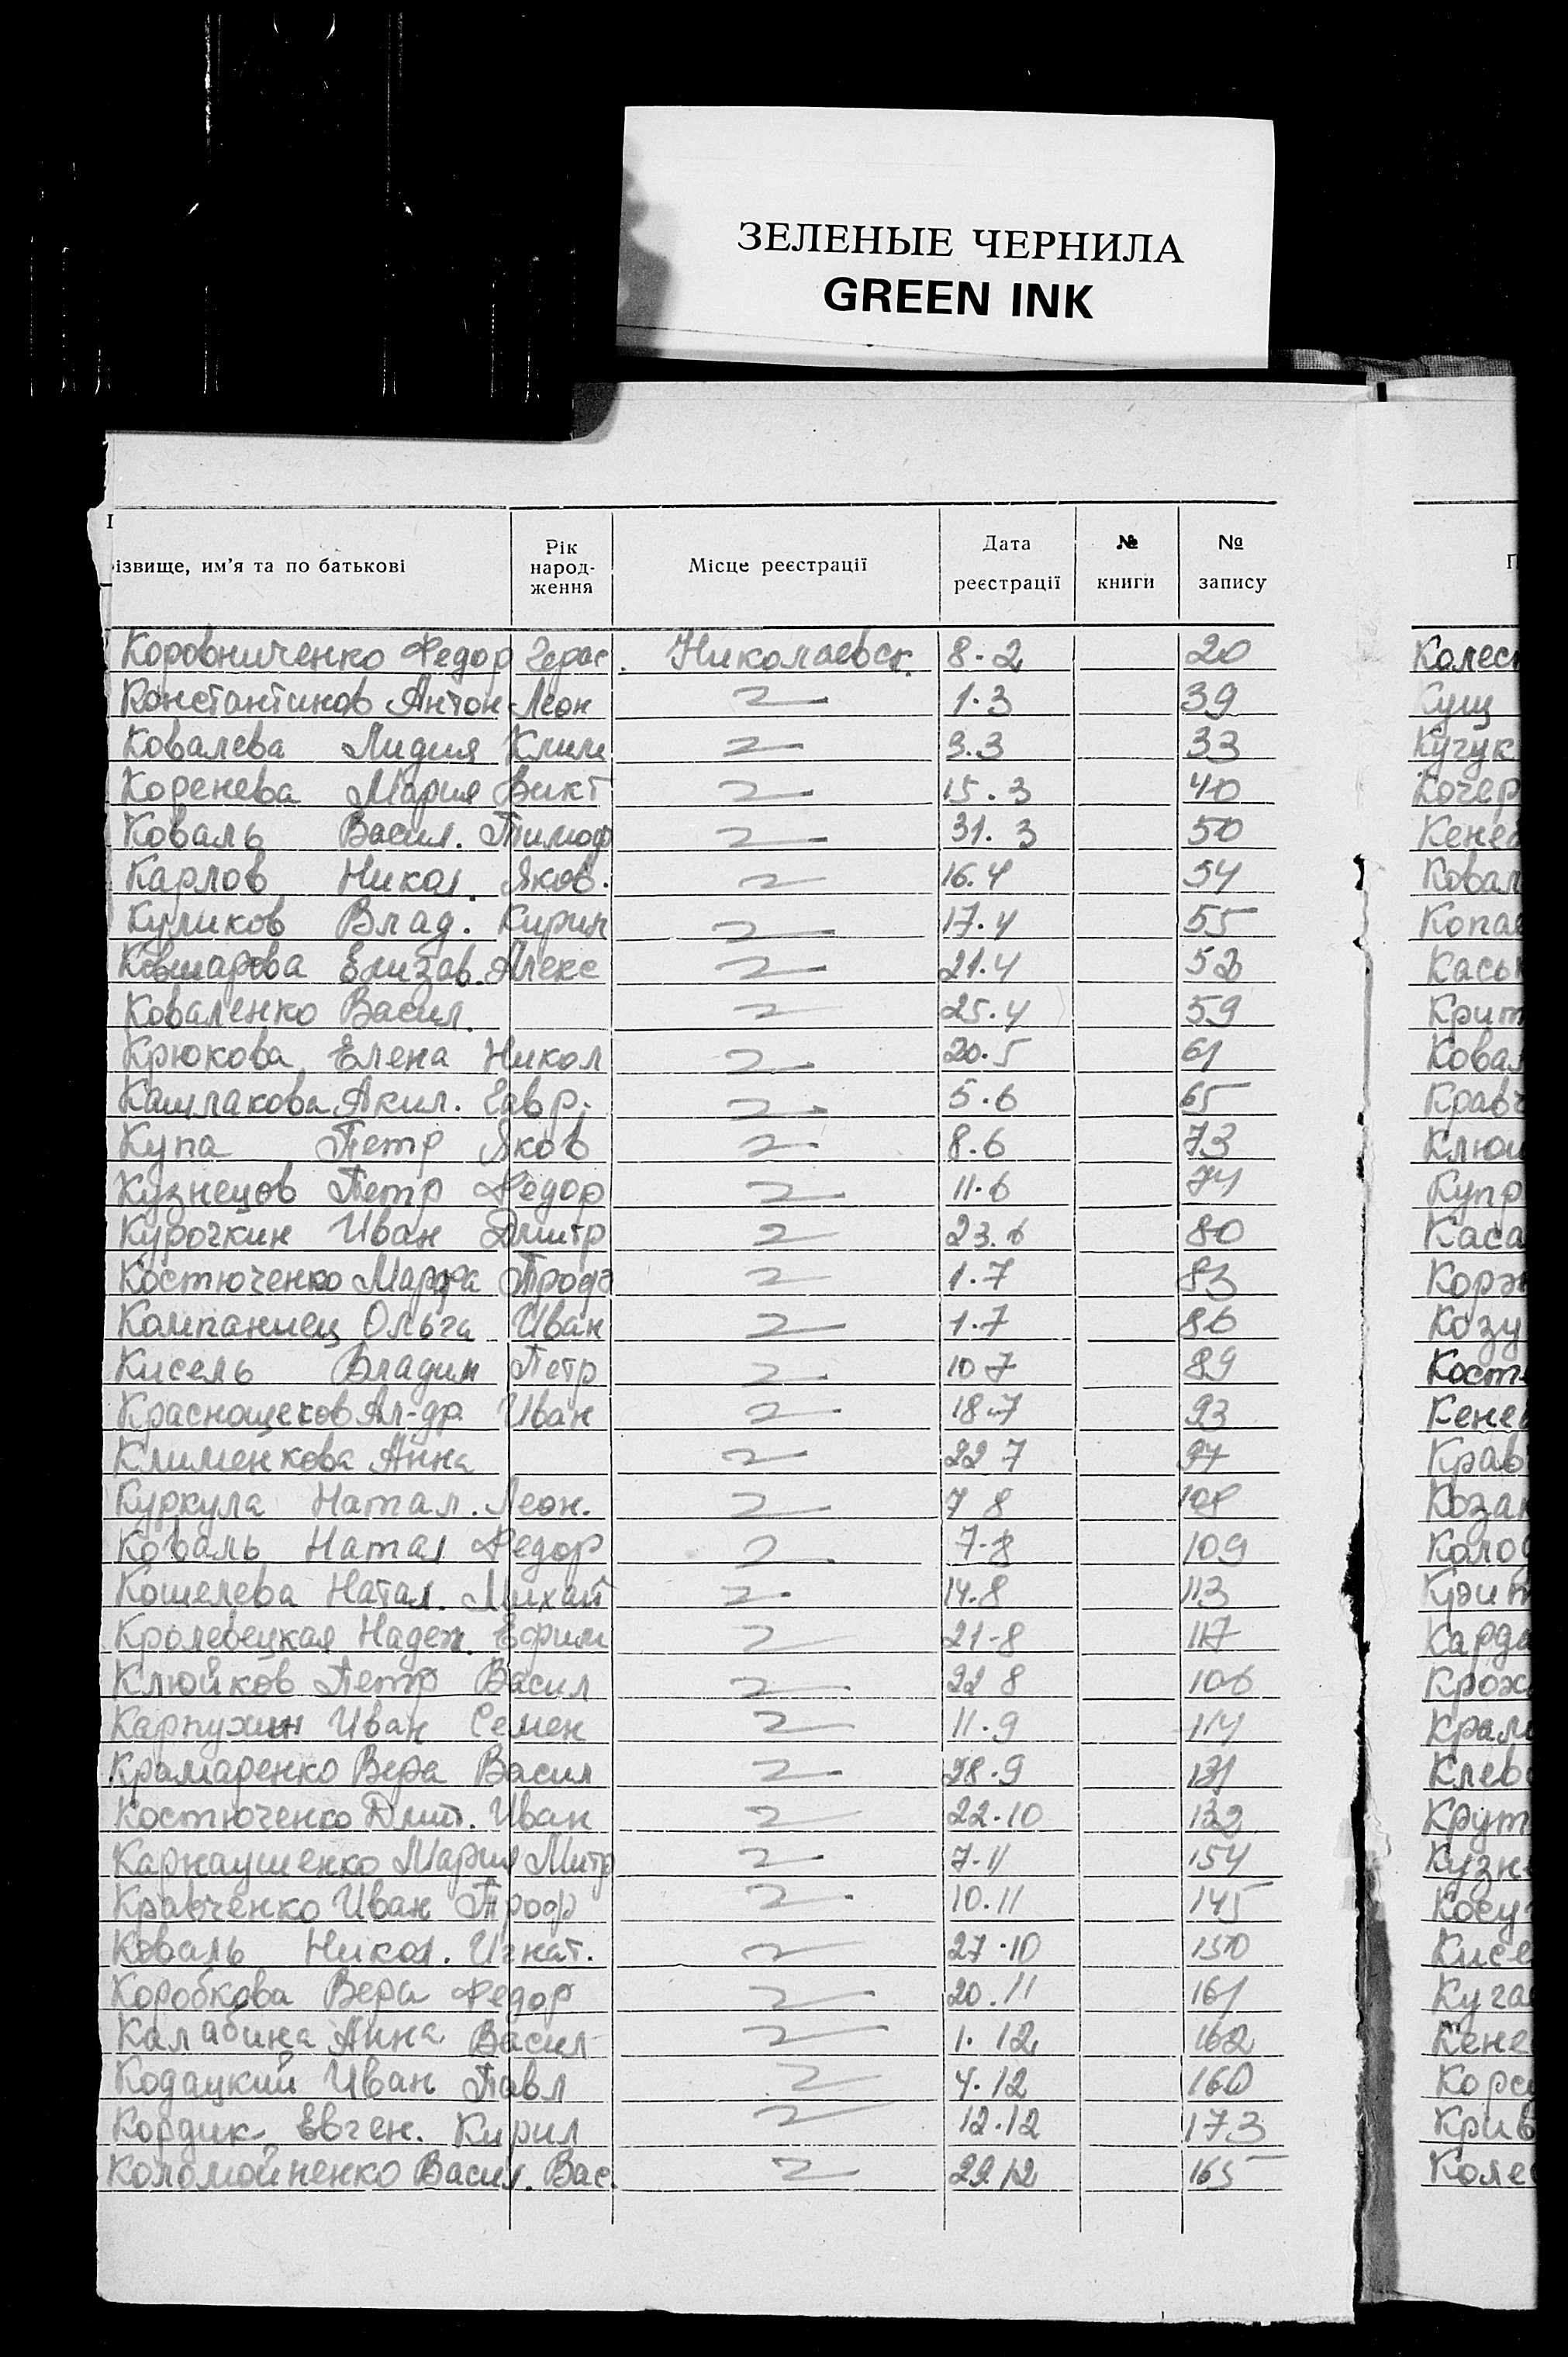 ЗЕЛЕНЫЕ ЧЕРНИЛА
GREEN INK
ізвище, им’я та по батькові
Рік народ- ження
Місце реєстрації
Дата реєстрації
№ книги
№ запису
Коровниченко Федор Герас. Николаевск. 8.2 20
Константинов Антон Леон 1.3 39
Ковалева Лидия Клим 3.3 33
Коренева Мария Викт 15.3 40
Коваль Васил. Тимоф 31.3 50
Карлов Никол. Яков. 16.4 54
Куликов Влад. Кирил 17.4 55
Елизав. Алекс 21.4 52
Коваленко Васил. 25.4 59
Крюкова Елена Никол 20.5 61
Кашлакова Акил. Гавр. 5.6 65
Купа Петр Яков 8.6 73
Кузнецов Петр Федор 11.6 74
Курочкин Иван Дмитр 23.6 80
Костюченко Марфа 1.7 83
Компаниец Ольга Иван 1.7 86
Кисель Владим Петр 10 7 89
Краснощеков Ал-др. Иван 18.7 93
Клименкова Анна 22 7 97
Куркула Натал. Леон. 7 8 108
Коваль Натал Федор 7.8 109
Кошелева Натал. Михай 14.8 113
Кролевецкая Надеж. Ефим 21-8 117
Клюйков Петр Васил 22 8 106
Карпухин Иван Семен 11.9 114
Крамаренко Вера Васил 28.9 131
Костюченко Дмит. Иван 22.10 132
Карнаушенко Мария Митр 7.11 154
Кравченко Иван Троф 10.11 145
Коваль Никол. Игнат. 27.10 150
Коробкова Вера Федор 20.11 161
Калабина Анна Васил 1.12 162
Кодацкий Иван Павл 4.12 160
Кордик Евген. Кирил 12.12 173
Коломойненко Васил. Вас. 22.12 165
Колес
Кущ
Кучук
Кочер
Кене
Ковал
Копа
Кась
Крит
Ковал
Кравч
Клюш
Купр
Каса
Корэ
Козу
Кост
Кене
Крав
Козак
Колоб
Карда
Крож
Крам
Клев
Крут
Кузн
Косу
Кисе
Куга
Кене
Корс
Крив
Колес